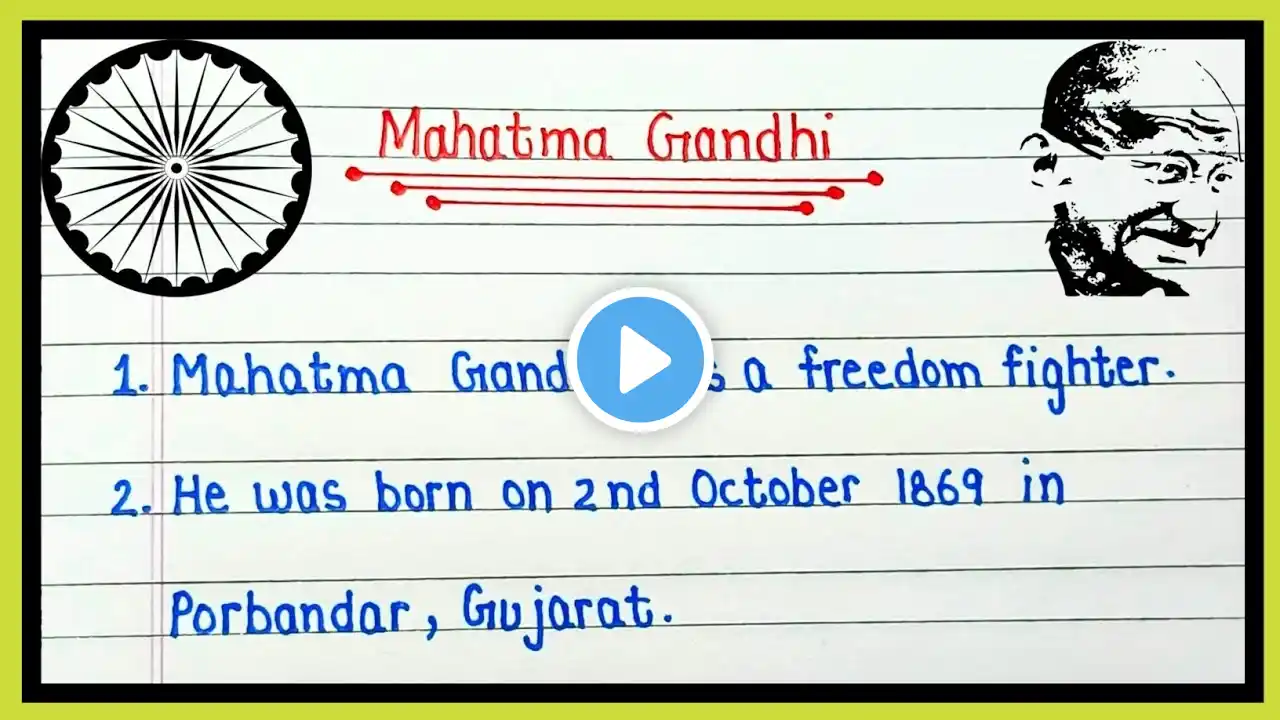 Mahatma Gandhi
1. Mahatma Gand s a freedom fighter.
2. He was born on 2nd October 1869 in
Porbandar, Gujarat.